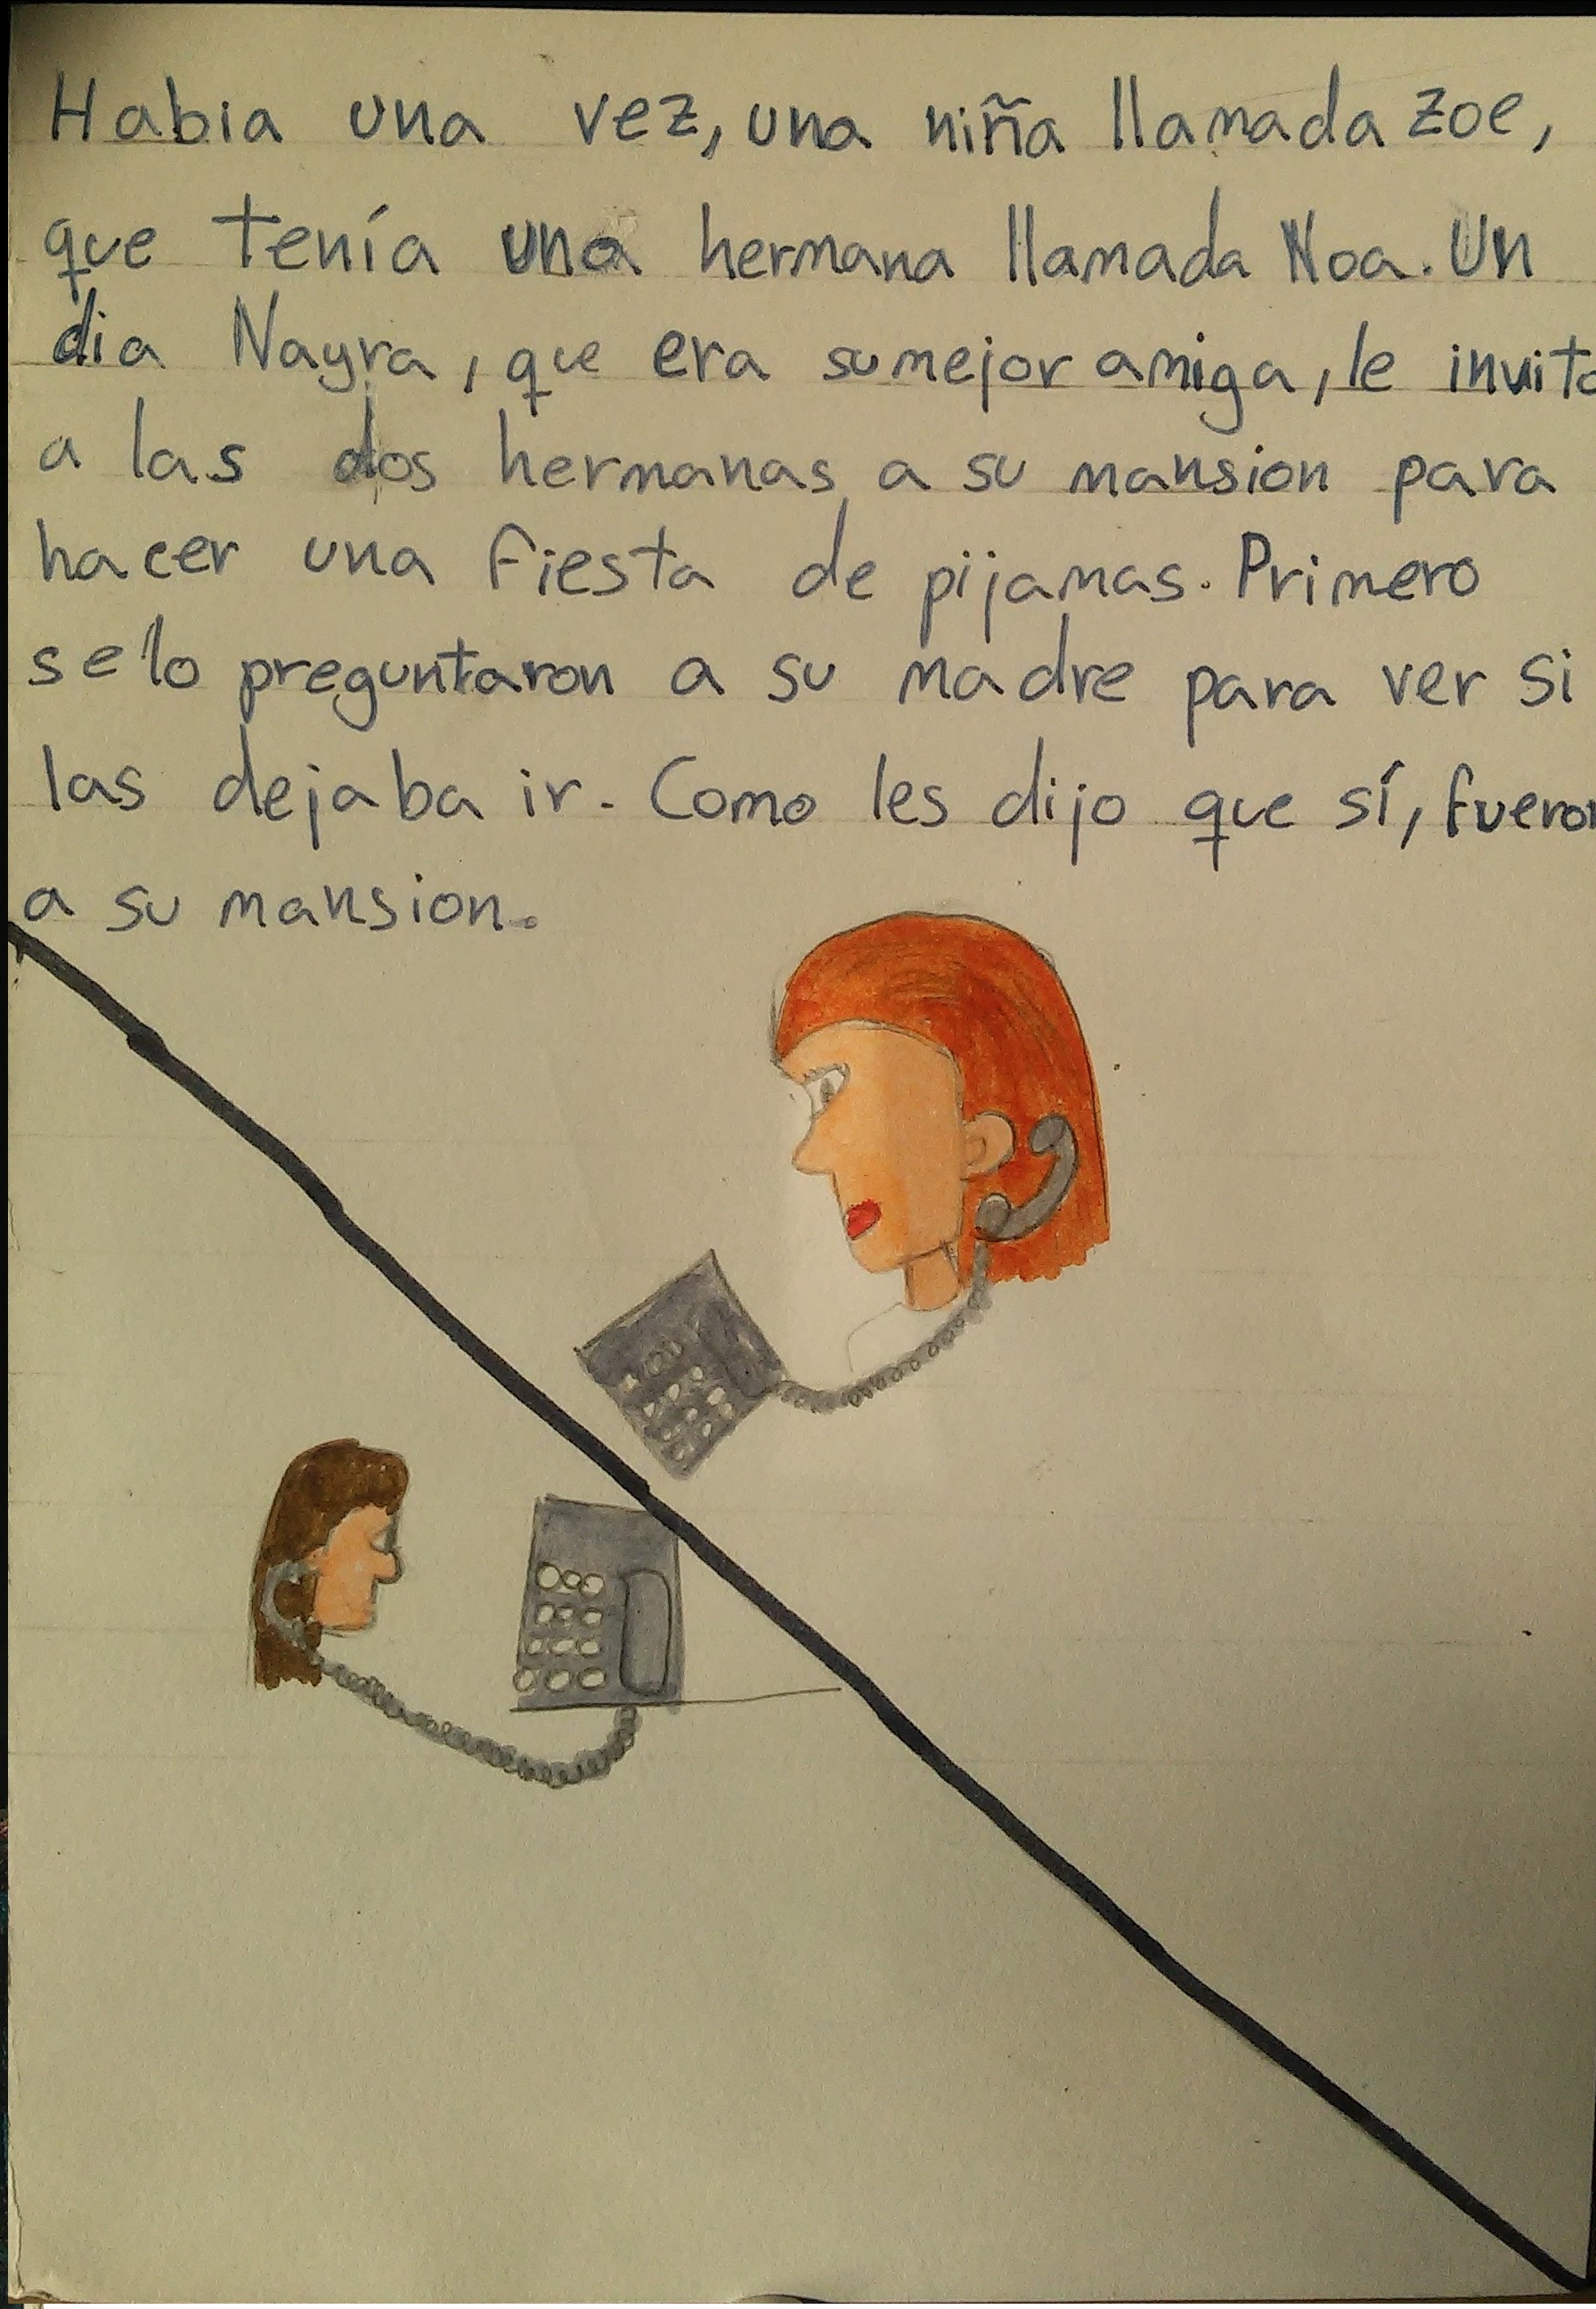 Habia una vez, una niña llamada Zoe,
que tenía una hermana llamada Noa. Un
dia Nayra, que era su mejor amiga, le invito
a las dos hermanas a su mansion para
hacer una fiesta de pijamas. Primero
se lo preguntaron a su madre para ver si
las dejaba ir. Como les dijo que sí, fueron
a su mansion.